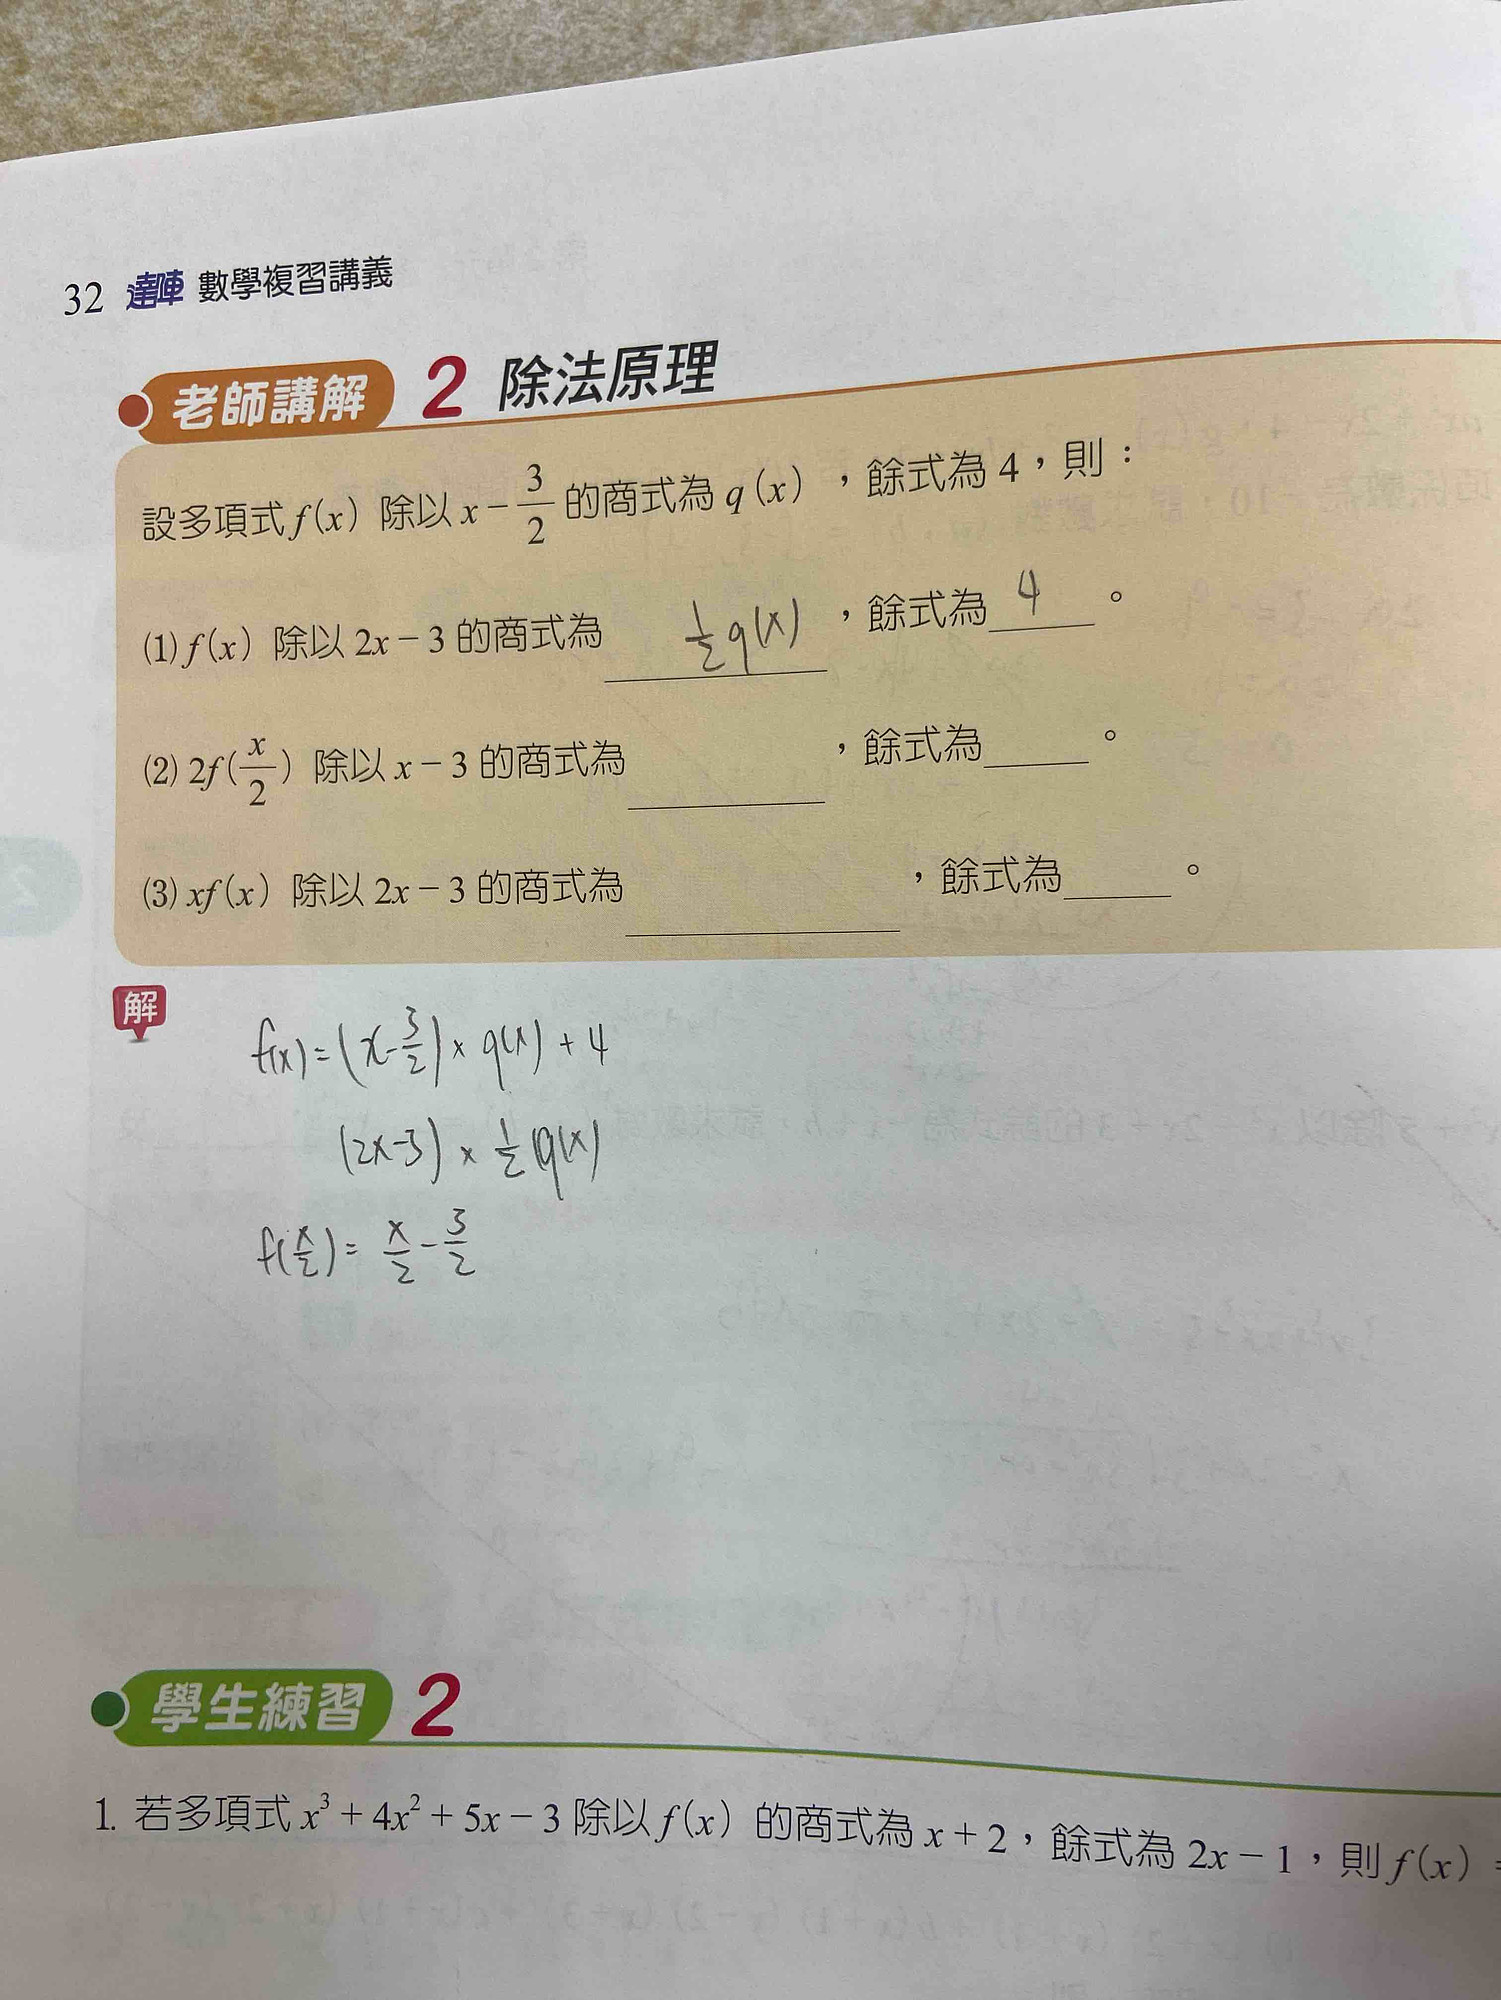 32 達陣 數學複習講義
老師講解 2 除法原理
設多項式 f(x) 除以 x − 3/2 的商式為 q(x),餘式為 4,則:
(1) f(x) 除以 2x − 3 的商式為 1/2 q(x) ,餘式為 4 。
(2) 2f(x/2) 除以 x − 3 的商式為______,餘式為____。
(3) xf(x) 除以 2x − 3 的商式為______,餘式為____。
解
f(x) = (x − 3/2) × q(x) + 4
(2x−3) × 1/2 q(x)
f(x/2) = x/2 − 3/2
學生練習 2
1. 若多項式 x³ + 4x² + 5x − 3 除以 f(x) 的商式為 x + 2,餘式為 2x − 1,則 f(x) =